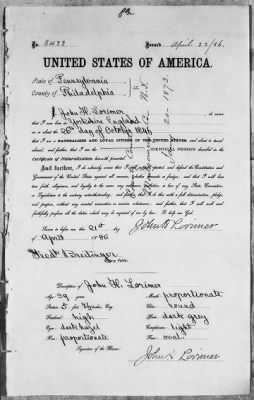 No. 5433 Issued April 22/86.
UNITED STATES OF AMERICA.
State of Pennsylvania
County of Philadelphia
I John H. Lorimer do swear
that I was born in Yorkshire England
on or about the 26th day of October 1846
that I am a NATURALIZED AND LOYAL CITIZEN OF THE UNITED STATES and about to travel
abroad; and further, that I am the IDENTICAL PERSON described in the
Certificate of Naturalization herewith presented.
And further, I do solemnly swear that I will support, protect and defend the Constitution and
Government of the United States against all enemies, whether domestic or foreign; and that I will bear true
faith, allegiance, and loyalty to the same, any ordinance, resolution, or law of any State, Convention,
or Legislature to the contrary notwithstanding; and further, that I do this with a full determination, pledge,
and purpose, without any mental reservation or evasion whatsoever; and further, that I will well and
faithfully perform all the duties which may be required of me by law. So help me God.
Sworn to before me this 21st day John H Lorimer
of April 1886
Theo. Breitinger
Notary Public
Description of John H. Lorimer
Age: 39 years Mouth: proportionate
Stature: 5 feet Inches, Eng. Chin: round
Forehead: high Hair: dark grey
Eyes: dark hazel Complexion: light
Nose: proportionate Face: oval.
Signature of the Bearer,
John H Lorimer